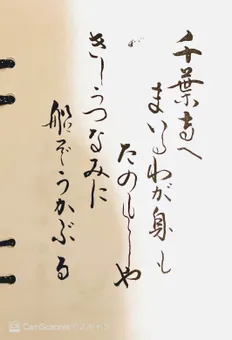 千葉寺へ
まいるわが身も
たのもしや
きしうつなみに
船ぞうかぶる
CamScanner